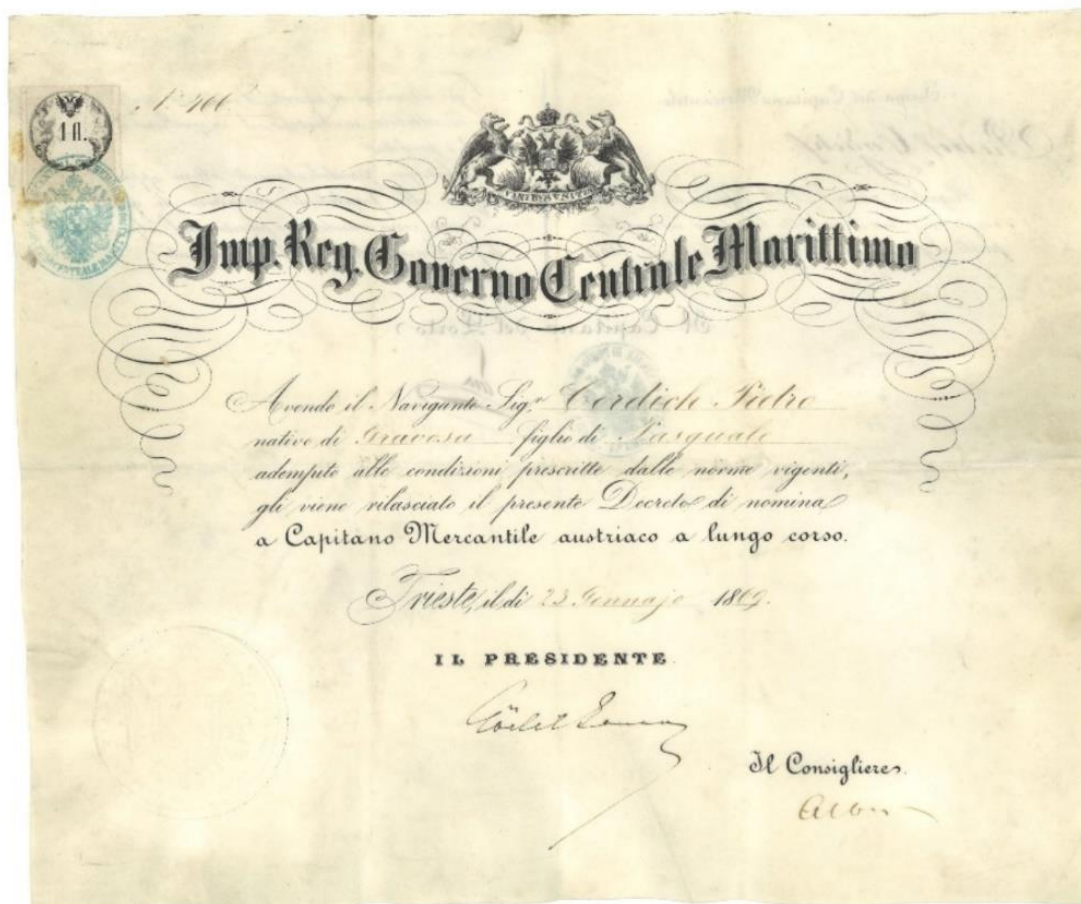 1 fl.
N. 466
VIRIBUS UNITIS
Imp. Reg. Governo Centrale Marittimo
Avendo il Navigante Sig.r Cerdich Pietro
nativo di Gravosa figlio di Pasquale
adempito alle condizioni prescritte dalle norme vigenti,
gli viene rilasciato il presente Decreto di nomina
a Capitano Mercantile austriaco a lungo corso.
Trieste, il dì 23 Gennajo 1869.
IL PRESIDENTE
Il Consigliere